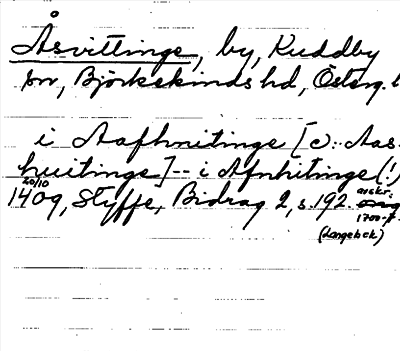 Åsvittinge, by, Kuddby
sn, Björkekinds hd, Österg. l
i Aafhuitinge [ɔ: Aas-
huitinge] -- i Afnhitinge (!)
20/10 1409, Styffe, Bidrag 2, s. 192. avskr.
1700-t.
(Langebek)